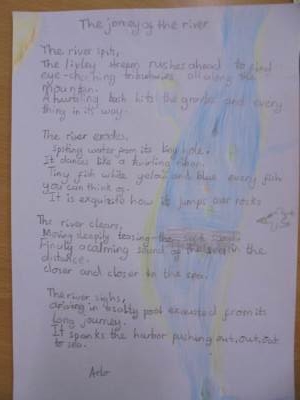 The jorney of the river
The river spits,
The livley stream rushes ahead to find
eye-catching tributaries all along the
mountain.
A twirling tusk hits the granite and every
thing in its way.
The river erodes,
spiting water from its tiny hole.
It dances like a twirling ribon.
Tiny fish white yelow and blue every fish
you can think of.
It is exquizite how its jumps over rocks
The river clears,
Moving deeply teasing the
Finaly a calming sound of the river in the
distance.
closer and closer to the sea.
The river sighs,
ariving in salty pool exausted from its
long journey.
It spanks the harbor pushing out, out, out
to sea.